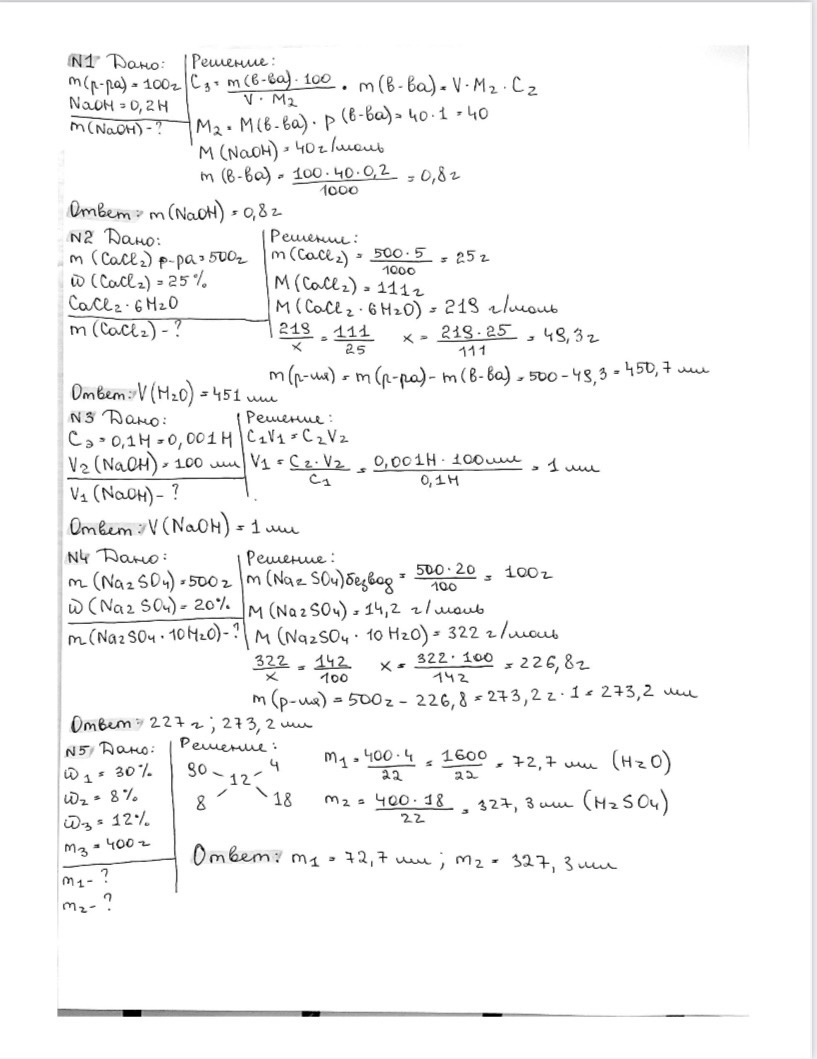 N1 Дано:
m(р-ра) = 100г
NaOH = 0,2Н
m(NaOH) - ?
Решение:
Cэ = m(в-ва)·100 / V·M2 · m(в-ва) = V·M2·C2
M2 = M(в-ва)·p (в-ва) = 40·1 = 40
M(NaOH) = 40г/моль
m(в-ва) = 100·40·0,2 / 1000 = 0,8г
Ответ: m(NaOH) = 0,8г
N2 Дано:
m(CaCl2) р-ра = 500г
ω(CaCl2) = 25%
CaCl2·6H2O
m(CaCl2) - ?
Решение:
m(CaCl2) = 500·5 / 1000 = 25г
M(CaCl2) = 111г
M(CaCl2·6H2O) = 219 г/моль
219 / x = 111 / 25 x = 219·25 / 111 = 49,3г
m(р-ля) = m(р-ра) - m(в-ва) = 500 - 49,3 = 450,7 мл
Ответ: V(H2O) = 451 мл
N3 Дано:
Cэ = 0,1Н = 0,001Н
V2(NaOH) = 100 мл
V1(NaOH) - ?
Решение:
C1V1 = C2V2
V1 = C2·V2 / C1 = 0,001Н·100мл / 0,1Н = 1 мл
Ответ: V(NaOH) = 1 мл
N4 Дано:
m(Na2SO4) = 500г
ω(Na2SO4) = 20%
m(Na2SO4·10H2O) - ?
Решение:
m(Na2SO4)безвод = 500·20 / 100 = 100г
M(Na2SO4) = 14,2 г/моль
M(Na2SO4·10H2O) = 322 г/моль
322 / x = 142 / 100 x = 322·100 / 142 = 226,8г
m(р-ля) = 500г - 226,8 = 273,2г·1 = 273,2 мл
Ответ: 227г; 273,2мл
N5 Дано:
ω1 = 30%
ω2 = 8%
ω3 = 12%
m3 = 400г
m1 - ?
m2 - ?
Решение:
30 4
12
8 18
m1 = 400·4 / 22 = 1600 / 22 = 72,7 мл (H2O)
m2 = 400·18 / 22 = 327,3мл (H2SO4)
Ответ: m1 = 72,7 мл; m2 = 327,3мл